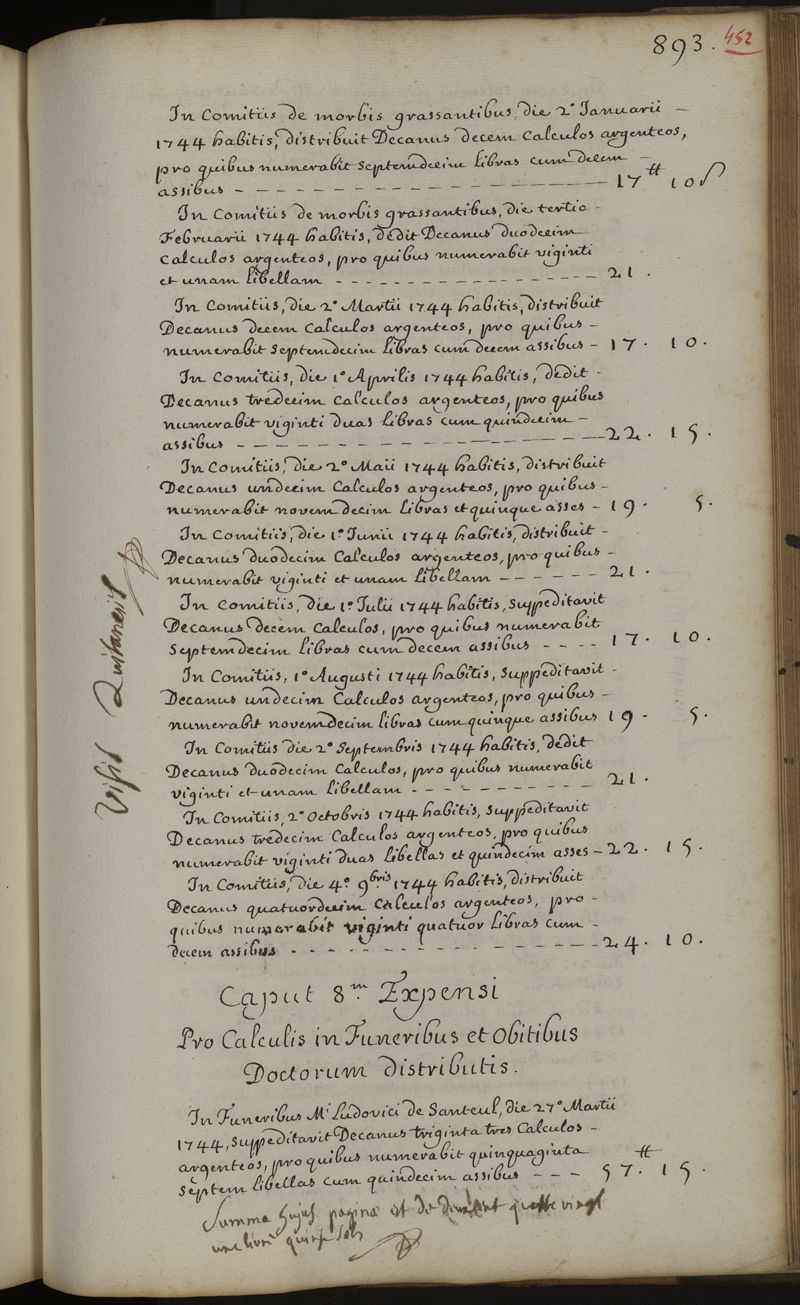 893. 452
In Comitiis de morbis grassantibus, die 2ª Ianuarii –
1744 habitis, distribuit Decanus decem Calculos argenteos,
pro quibus numerabit septemdecim libras cum decem –
assibus – – – – – – – – – – – – – – – – 17 ₶ 10 ſ
In Comitiis de morbis grassantibus, die tertio –
Februarii 1744 habitis, dedit Decanus duodecim
Calculos argenteos, pro quibus numerabit viginti
et unam libellam – – – – – – – – – – – – 21.
In Comitiis, die 2ª Martii 1744 habitis, distribuit
Decanus decem Calculos argenteos, pro quibus –
numerabit septemdecim libras cum decem assibus – 17. 10.
In Comitiis, die 1ª Aprilis 1744 habitis, dedit –
Decanus tredecim Calculos argenteos, pro quibus
numerabit viginti duas libras cum quindecim –
assibus – – – – – – – – – – – – – – – – 22. 15.
In Comitiis, die 2ª Maii 1744 habitis, distribuit
Decanus undecim Calculos argenteos, pro quibus –
numerabit novemdecim libras et quinque asses – 19. 5.
In Comitiis, die 1ª Iunii 1744 habitis, distribuit –
Decanus duodecim Calculos argenteos, pro quibus –
numerabit viginti et unam libellam – – – – – – 21.
In Comitiis, die 1ª Iulii 1744 habitis, suppeditavit
Decanus decem Calculos, pro quibus numerabit
septemdecim libras cum decem assibus – – – – 17. 10.
In Comitiis, 1ª Augusti 1744 habitis, suppeditavit –
Decanus undecim Calculos argenteos, pro quibus –
numerabit novemdecim libras cum quinque assibus 19. 5.
In Comitiis die 2ª Septembris 1744 habitis, dedit
Decanus duodecim Calculos, pro quibus numerabit
viginti et unam libellam – – – – – – – – – 21.
In Comitiis, 2ª Octobris 1744 habitis, suppeditavit
Decanus tredecim Calculos argenteos, pro quibus
numerabit viginti duas libellas et quindecim asses – 22. 15.
In Comitiis, die 4ª 9bris 1744 habitis, distribuit
Decanus quatuordecim Calculos argenteos, pro –
quibus numerabit viginti quatuor libras cum –
decem assibus – – – – – – – – – – – – – – 24. 10.
Visis Quitanciis
Caput 8m Expensi
Pro Calculis in Funeribus et Obitibus
Doctorum distributis.
In Funeribus Mi Ludovici de Santeul, die 27ª Martii
1744, suppeditavit Decanus triginta tres Calculos –
argenteos, pro quibus numerabit quinquaginta
septem libellas cum quindecim assibus – – – 57. ₶ 15.
Summa hujus paginæ est de deux cent quatre vingt
une livre quinze sols